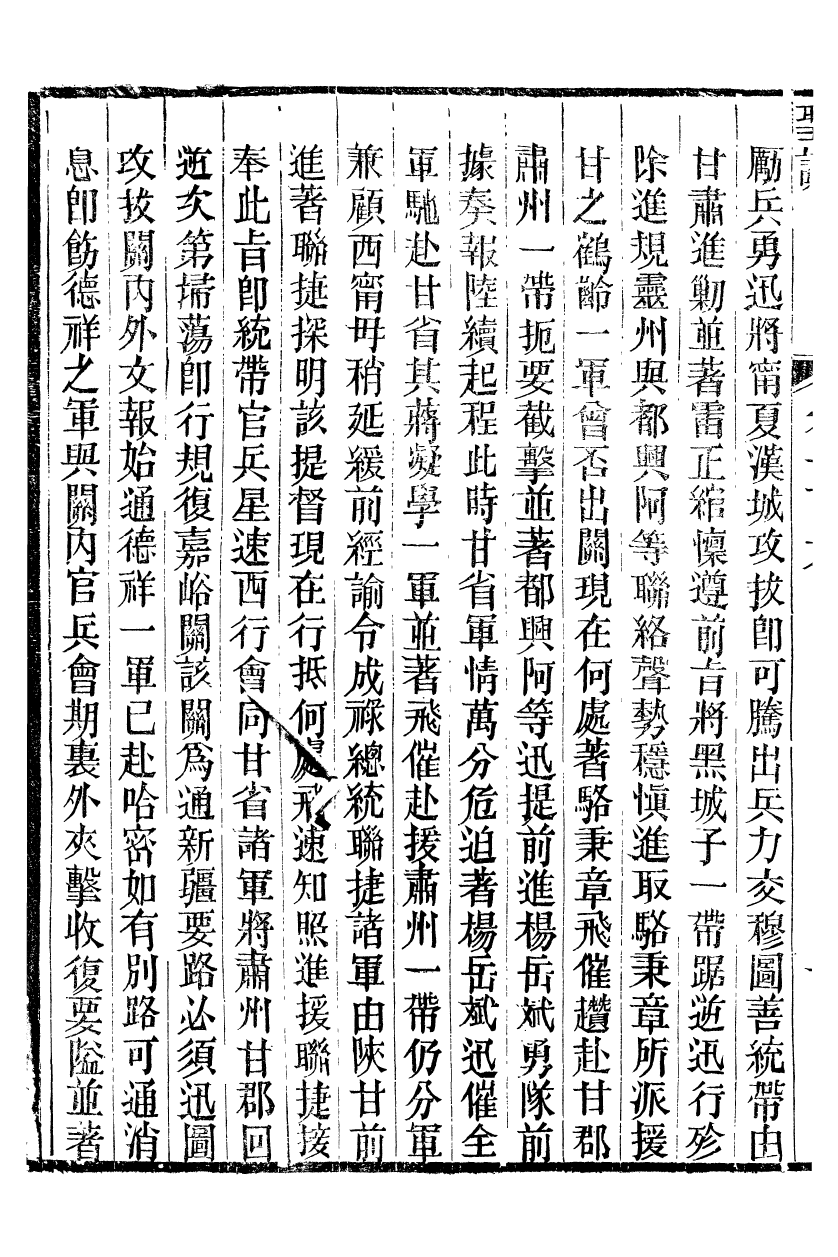 勵兵勇迅將甯夏漢城攻拔卽可騰出兵力交穆圖善統帶由
甘肅進勦並著雷正綰懍遵前旨將黑城子一帶踞逆迅行殄
除進規靈州與都興阿等聯絡聲勢穩愼進取駱秉章所派援
甘之鶴齡一軍曾否出關現在何處著駱秉章飛催趲赴甘郡
肅州一帶扼要截擊並著都興阿等迅提前進楊岳斌勇隊前
據奏報陸續起程此時甘省軍情萬分危迫著楊岳斌迅催全
軍馳赴甘省其蔣凝學一軍並著飛催赴援肅州一帶仍分軍
兼顧西甯毋稍延緩前經諭令成祿總統聯捷諸軍由陝甘前
進著聯捷探明該提督現在行抵何處飛速知照進援聯捷接
奉此旨卽統帶官兵星速西行會向甘省諸軍將肅州甘郡回
逆次第掃蕩卽行規復嘉峪關該關爲通新疆要路必須迅圖
攻拔關內外文報始通德祥一軍已赴哈密如有別路可通消
息卽飭德祥之軍與關內官兵會期裏外夾擊收復要隘並著